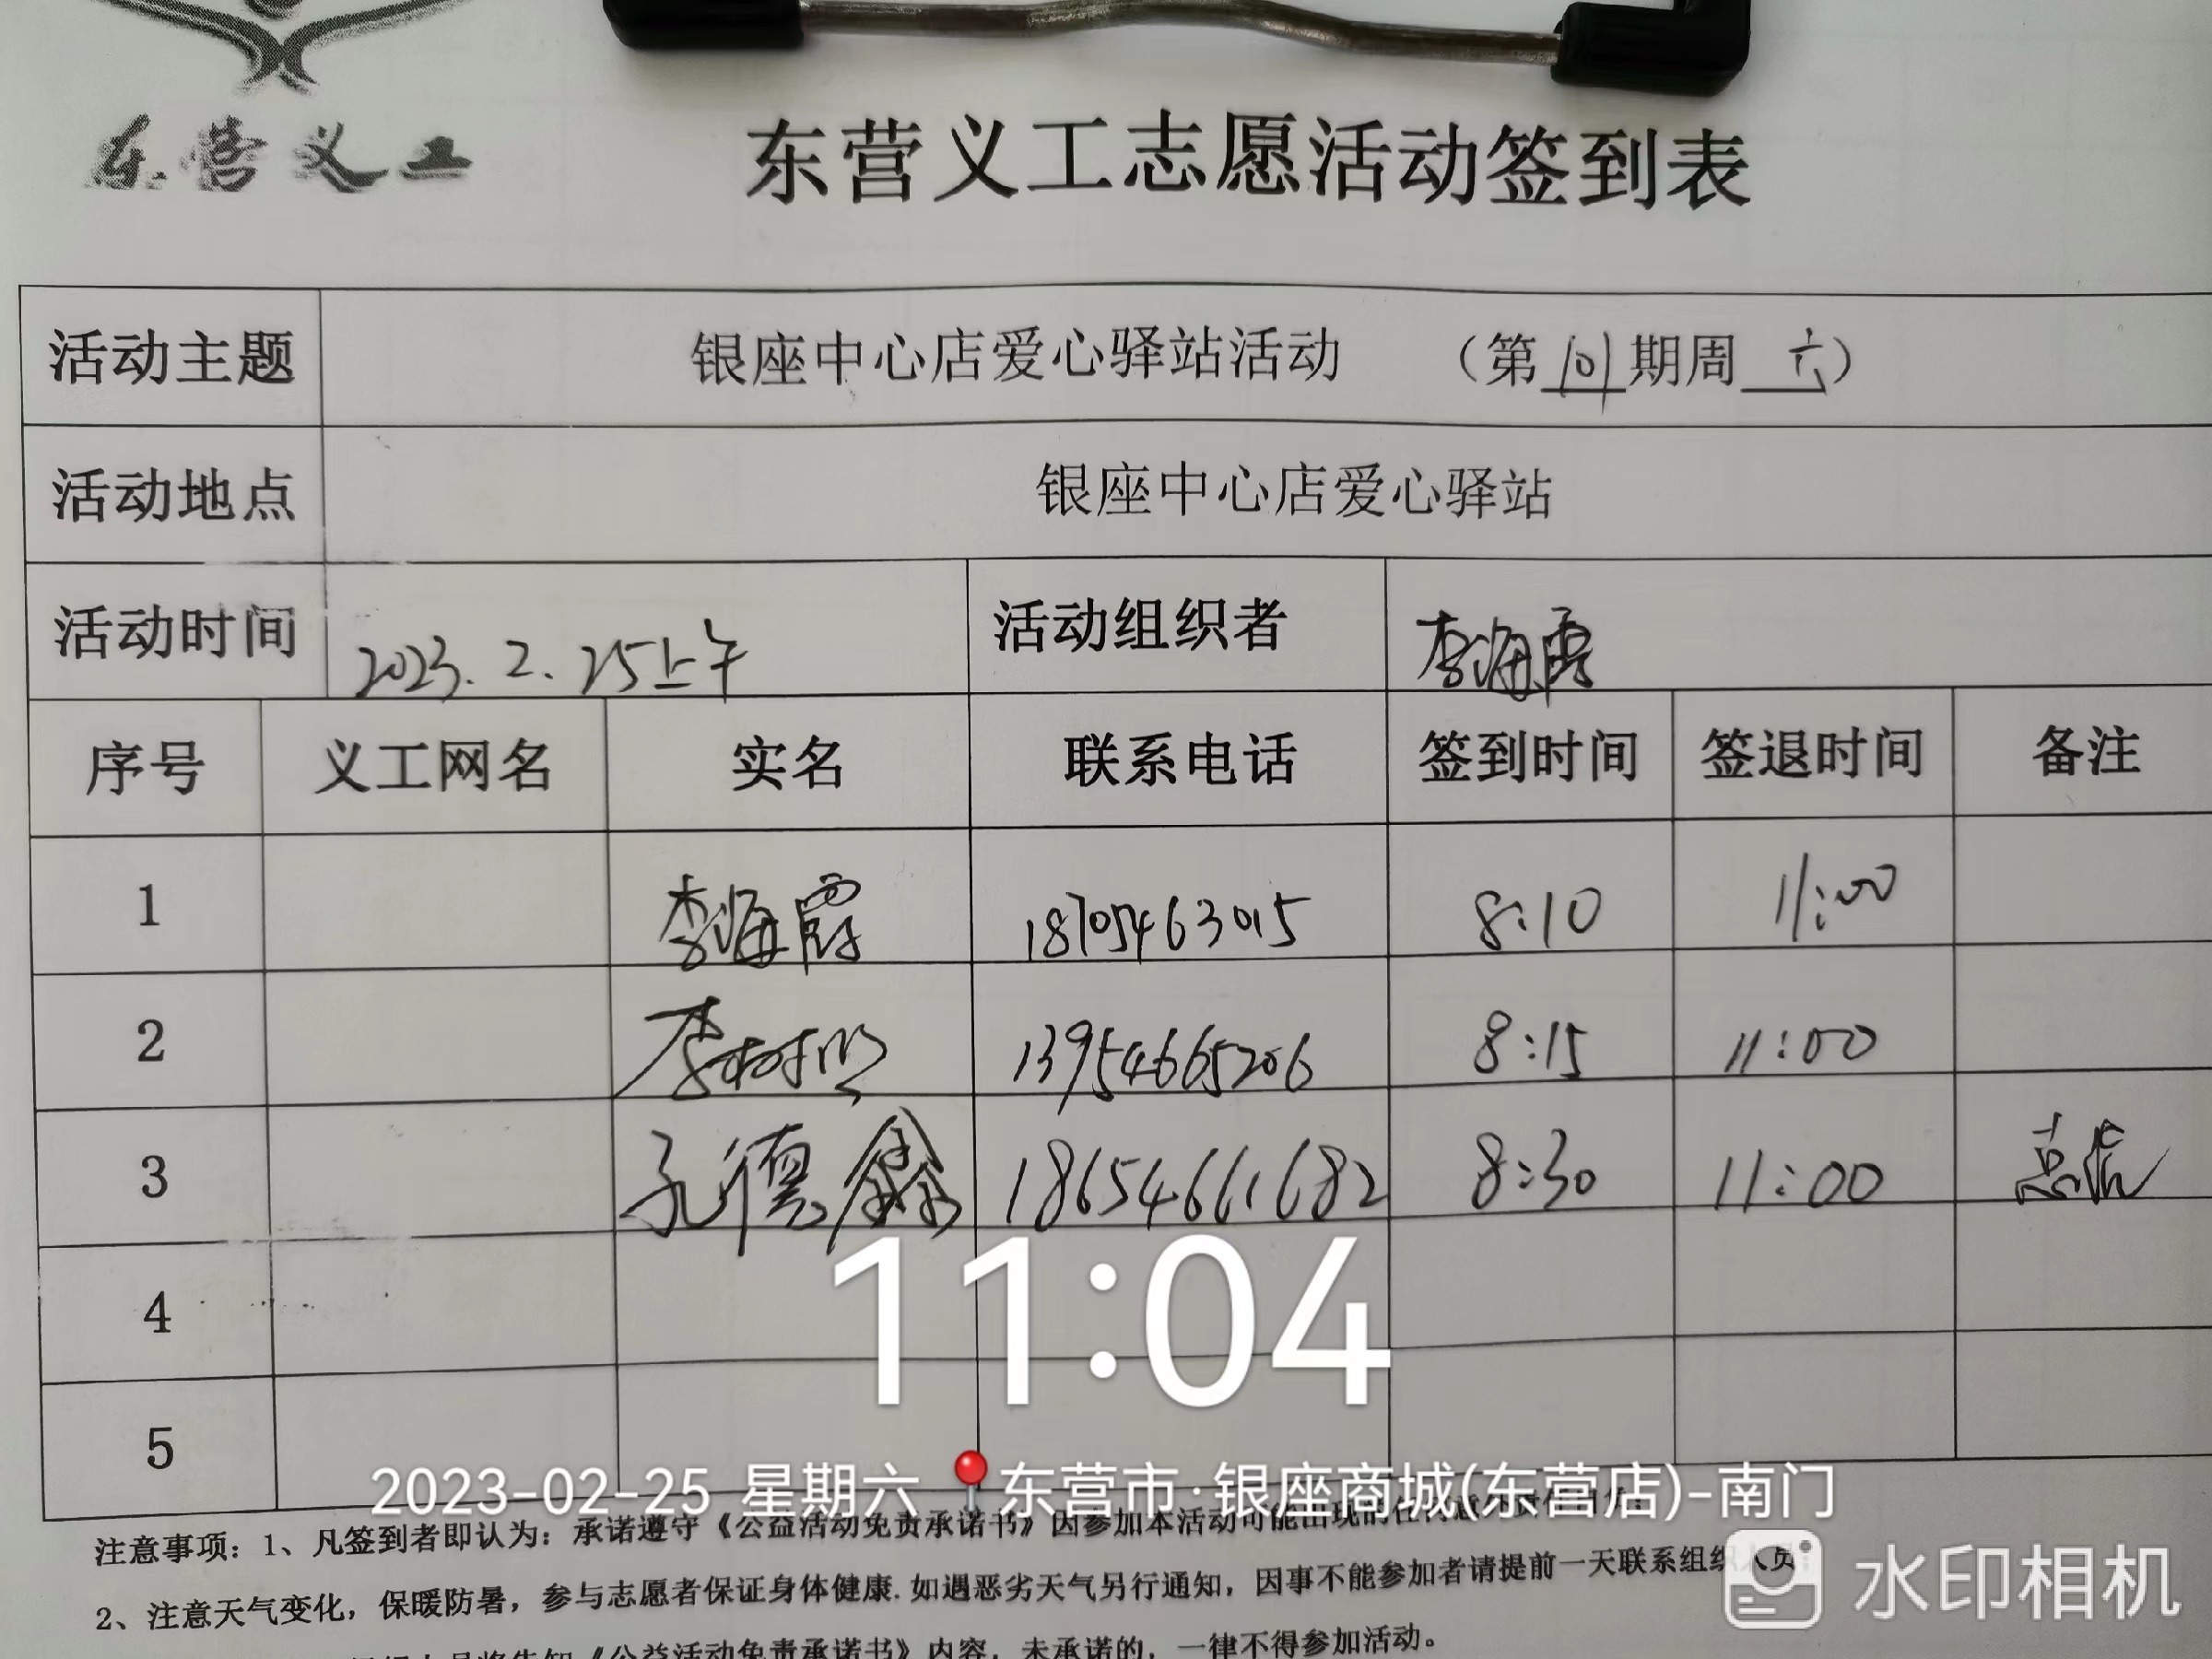 东营义工
东营义工志愿活动签到表
活动主题 银座中心店爱心驿站活动 （第101期周六）
活动地点 银座中心店爱心驿站
活动时间 2023.2.25上午 活动组织者 李海霞
序号 义工网名 实名 联系电话 签到时间 签退时间 备注
1 李海霞 18705463015 8:10 11:00
2 李树明 13954665206 8:15 11:00
3 孔德鑫 18654661682 8:30 11:00
4
5
11:04
2023-02-25 星期六 东营市·银座商城(东营店)-南门
注意事项：1、凡签到者即认为：承诺遵守《公益活动免责承诺书》因参加本活动可能出现的任何意外责任
2、注意天气变化，保暖防暑，参与志愿者保证身体健康.如遇恶劣天气另行通知，因事不能参加者请提前一天联系组织人员
《公益活动免责承诺书》内容，未承诺的，一律不得参加活动。
水印相机